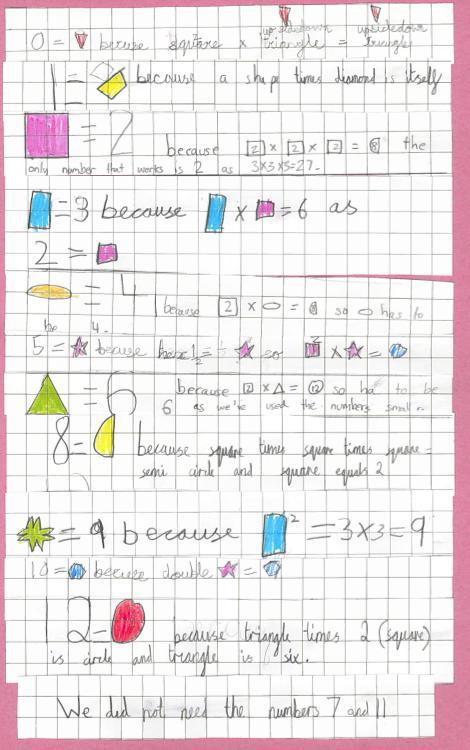 upsidedown upsidedown
0 = because square x triangle = triangle
1 = because a shape times diamond is itself
= 2 because 2 x 2 x 2 = 8 the
only number that works is 2 as 3x3x3=27.
=3 because x =6 as
2 =
= 4 because 2 x = 8 so has to
be 4.
5 = because so x =
= 6 because 2 x = 12 so ha to be
6 as we've used the numbers
8= because square times square times square =
semi circle and square equals 2
= 9 because 2 =3x3=9
10= because double =
12= because triangle times 2 (square)
is circle and triangle is six.
We did not need the numbers 7 and 11